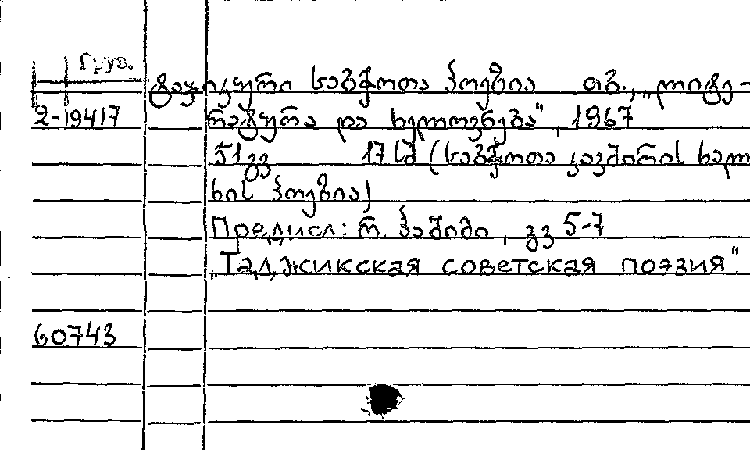 Груз.
ტაჯიკური საბჭოთა პოეზია თბ., „ლიტე-
2-19417 რატურა და ხელოვნება", 1967
51 გვ 17 სმ (საბჭოთა კავშირის ხალ
ხის პოეზია)
Предисл: რ. ჰაშიმი, გვ 5-7
„Таджикская советская поэзия".
60743